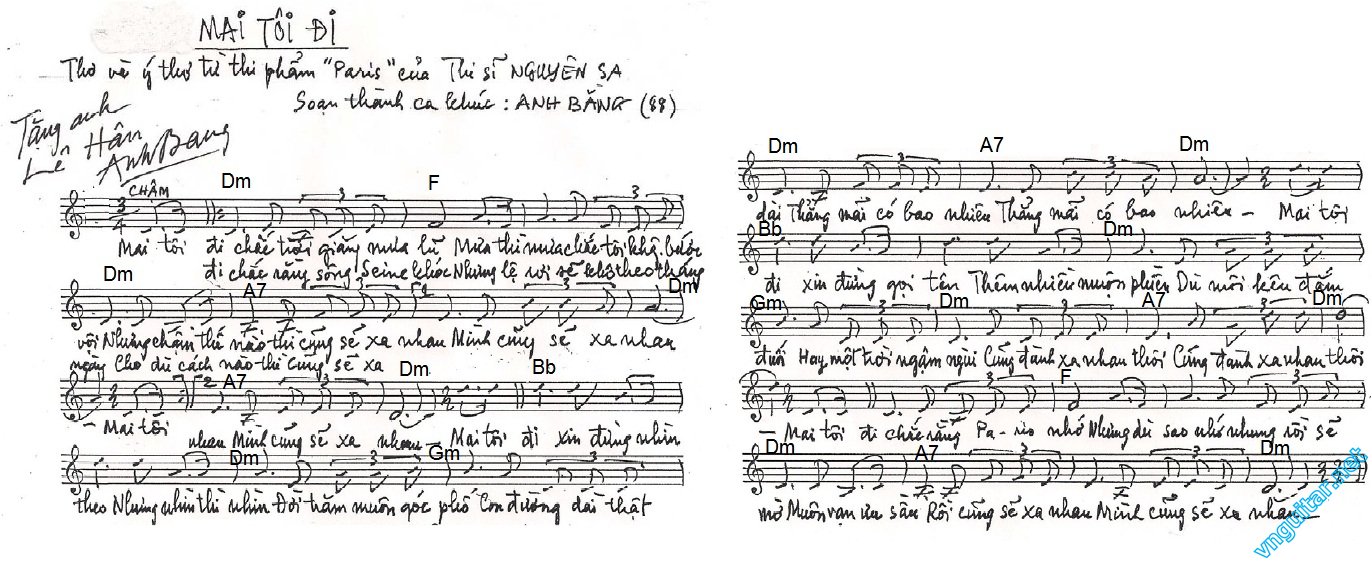 MAI TÔI ĐI
Thơ và ý thơ từ thi phẩm "Paris" của Thi sĩ NGUYÊN SA
Soạn thành ca khúc : ANH BẰNG (88)
Tặng anh
Lê Hân
AnhBang
CHẬM
Dm F
Mai tôi đi chắc trời giăng mưa lũ Mưa thì mưa chắc tôi khg bước
đi chắc rằng sông Seine khóc Nhưng lệ rơi sẽ khg theo tháng
Dm A7 Dm
vội Nhưng chậm thế nào thì cũng sẽ xa nhau Mình cũng sẽ xa nhau
ngày Cho dù cách nào thì cũng sẽ xa
A7 Dm Bb
– Mai tôi nhau Mình cũng sẽ xa nhau – Mai tôi đi xin đừng nhìn
Dm Gm
theo Nhưng nhìn thì nhìn Đời trăm muôn góc phố Con đường dài thật
Dm A7 Dm
dài Thẳng mãi có bao nhiêu Thẳng mãi có bao nhiêu – Mai tôi
Bb Dm
đi xin đừng gọi tên Thêm nhiều muộn phiền Dù môi kêu đắm
Gm Dm A7 Dm
đuối Hay một trời ngậm ngùi Cũng đành xa nhau thôi Cũng đành xa nhau thôi
F
– Mai tôi đi chắc rằng Pa-ris nhớ Nhưng dù sao nhớ nhung rồi sẽ
Dm A7 Dm
mờ Muôn vạn ưu sầu Rồi cũng sẽ xa nhau Mình cũng sẽ xa nhau
vnguitar.net